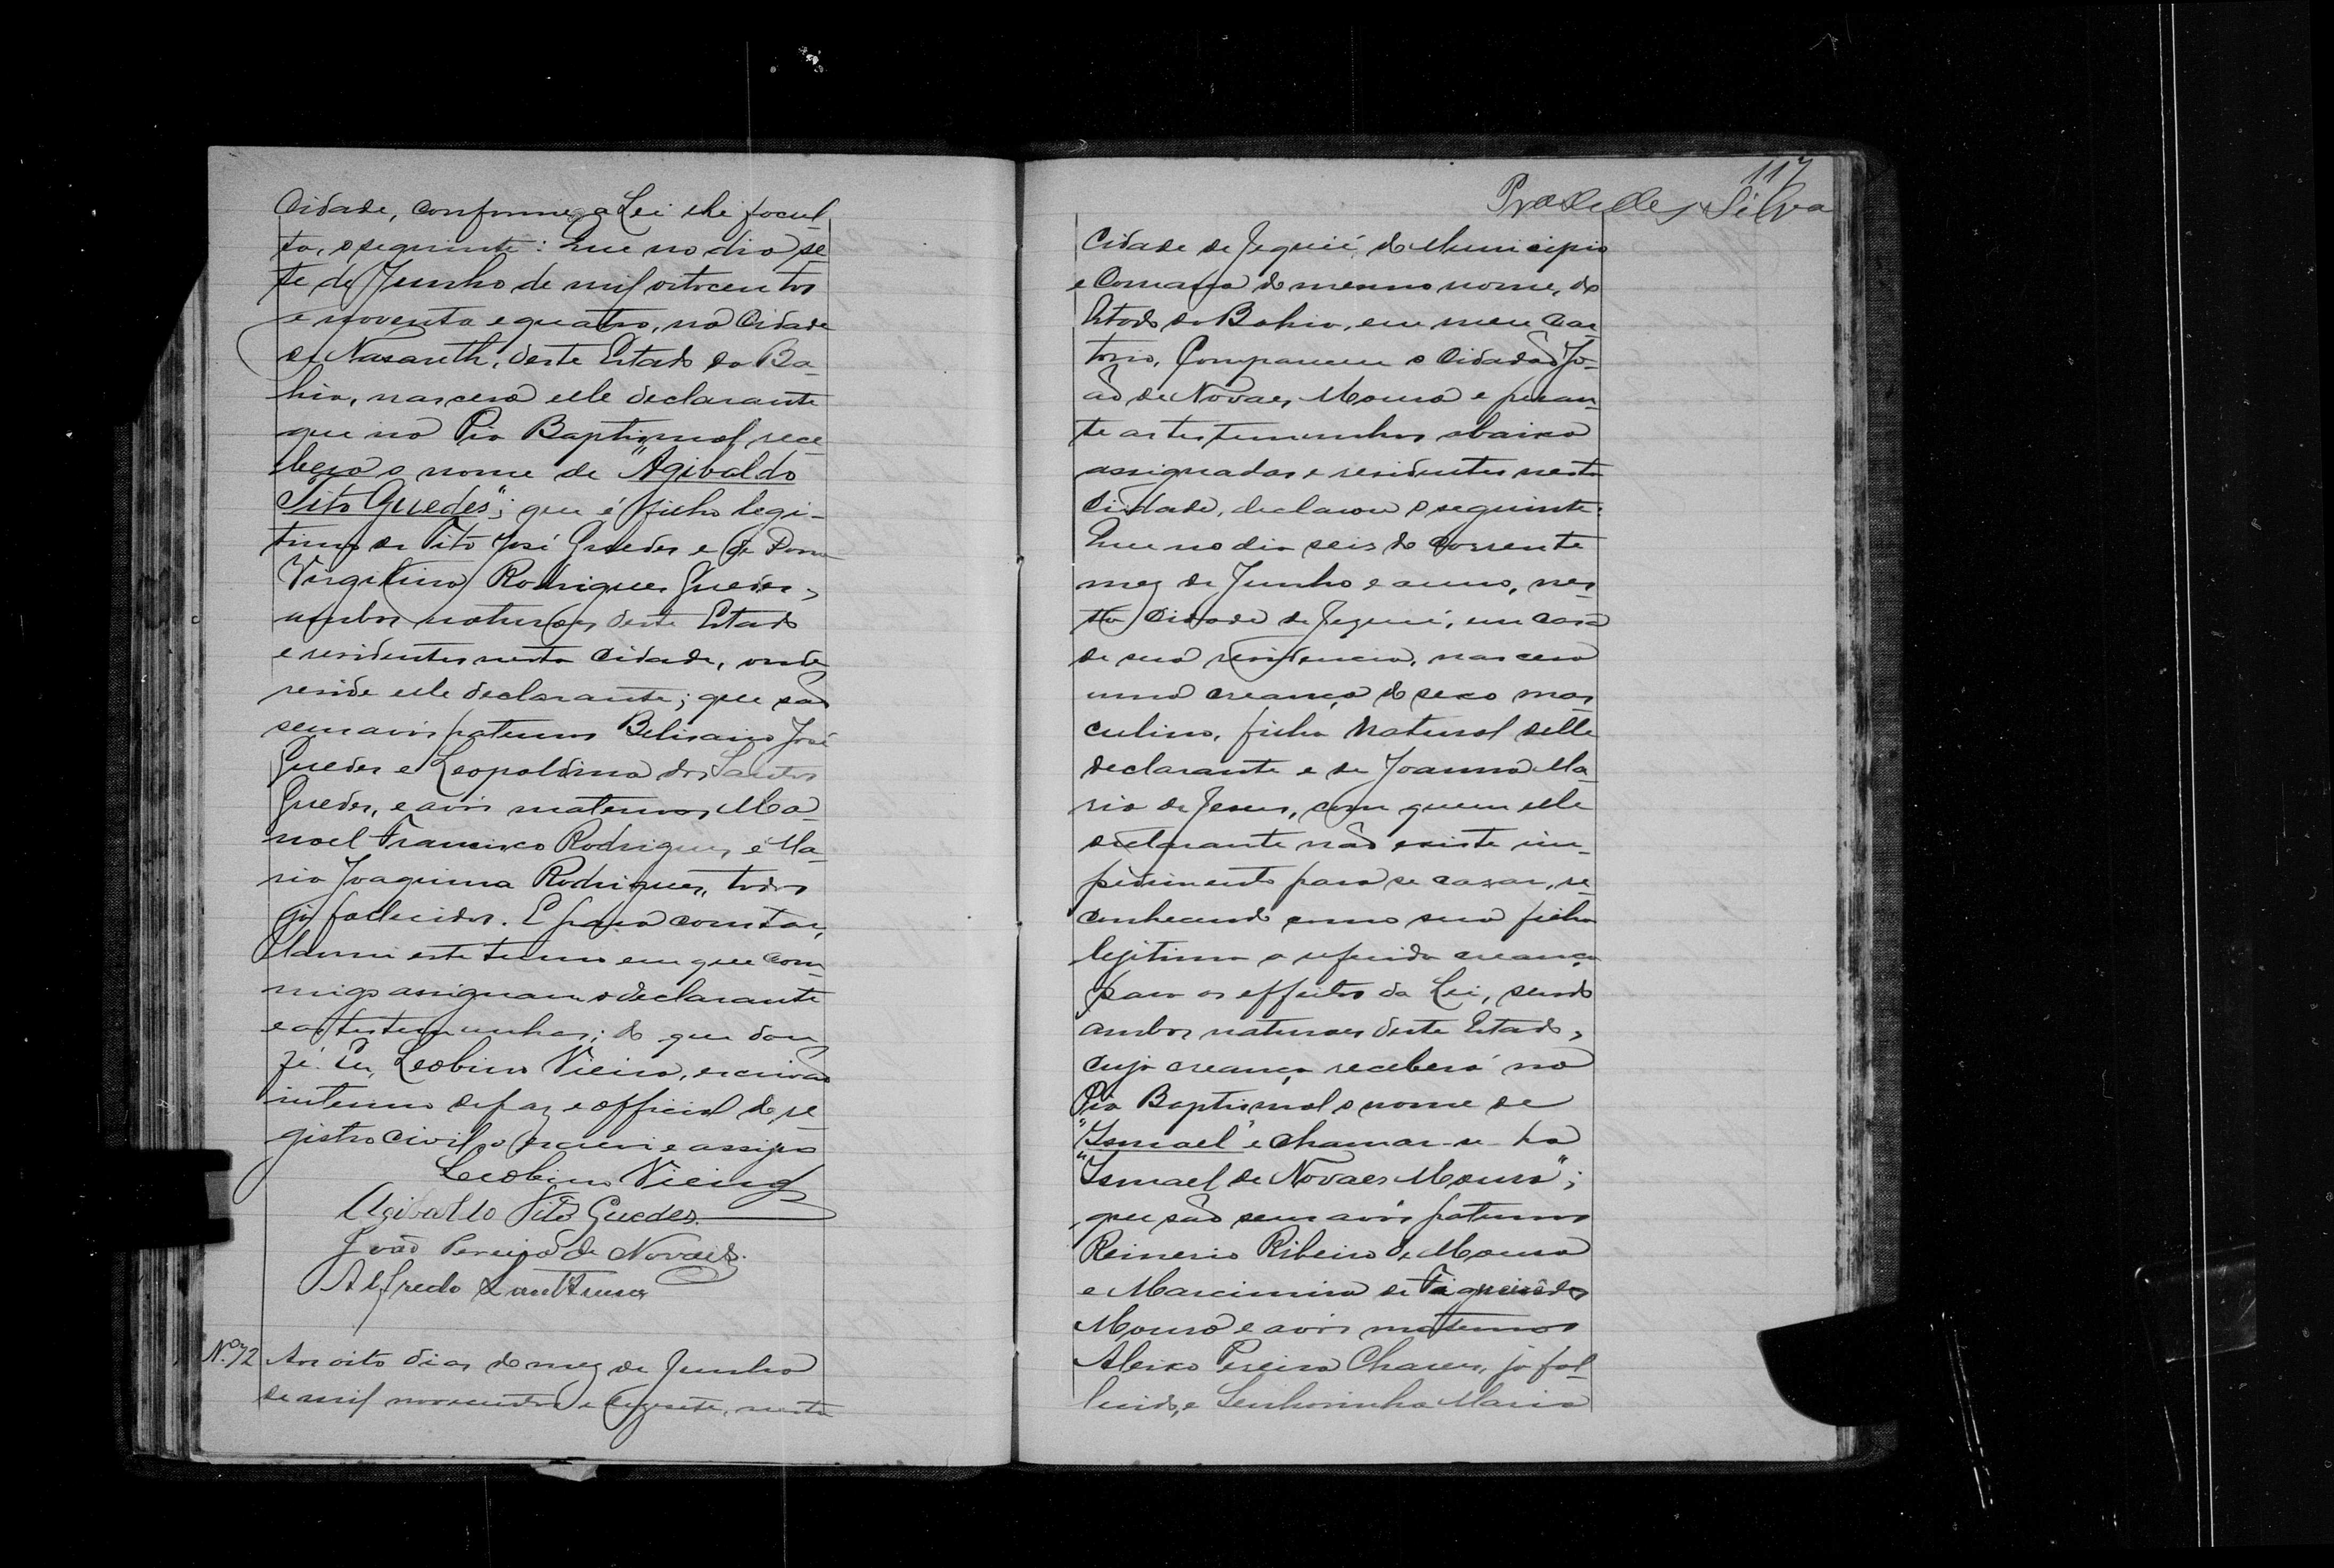 Cidade, conforme a Lei lhe facul-
ta, o seguinte: Que no dia se-
te de Junho de mil oitocentos
e noventa e quatro, na Cidade
de Nasareth, deste Estado da Ba-
hia, nascera elle declarante
que na Pia Baptismal rece-
bera o nome de "Agibaldo
Tito Guedes"; que é filho legi-
timo de Tito José Guedes e de Dona
Virgilina Rodrigues Guedes,
ambos naturaes deste Estado
e residentes nesta Cidade, onde
reside elle declarante; que são
seus avós paternos Belisario José
Guedes e Leopoldina dos Santos
Guedes, e avós maternos Ma-
noel Francisco Rodrigues e Ma-
ria Joaquina Rodrigues, todos
já fallecidos. E para constar,
lavrei este termo em que com-
migo assignam o declarante
e as testemunhas; do que dou
fé. Eu, Leobino Vieira, escrivão
interino de paz e official do re-
gistro civil, o escrevi e assigno
Leobino Vieira
Agibaldo Tito Guedes
João Pereira de Novaes.
Alfredo
Nº 72 Aos oito dias do mez de Junho
de mil novecentos e dezesete, nesta
117
Silva
Cidade de Jequié, do Municipio
e Comarca do mesmo nome, do
Estado da Bahia, em meu Car-
torio, Compareceu o Cidadão Jo-
ão de Novaes Moura e peran-
te as testemunhas abaixo
assignadas e residentes nesta
Cidade, declarou o seguinte:
Que no dia seis do corrente
mez de Junho e anno, nes-
ta Cidade de Jequié, em casa
de sua residencia, nascera
uma creança do sexo mas-
culino, filha natural delle
declarante e de Joanna Ma-
ria de Jesus, com quem elle
declarante não existe im-
pedimento para se casar, re-
conhecendo como sua filha
legitima a referida creança
para os effeitos da Lei, sendo
ambos naturaes deste Estado,
cuja creança receberá na
Pia Baptismal o nome de
"Ismael" e chamar-se-ha
"Ismael de Novaes Moura";
que são seus avós paternos
Reinerio Ribeiro de Moura
e Marcimina de Figueirêdo
Moura e avós maternos
Aleixo Pereira Chaves, já fal-
lecido, e Senhorinha Maria